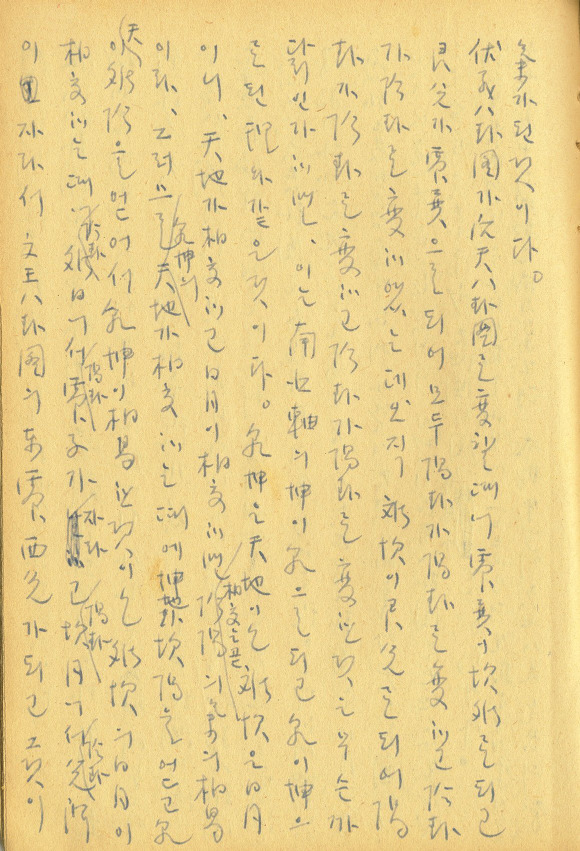 象가된것이다。
伏羲八卦圖가先天八卦圖로變할때에震巽이坎離로되고
艮兌가震巽으로되어모두陽卦가陽卦로變하고陰卦
가陰卦로變하였는데오직離坎이艮兌로되어陽
卦가陰卦로變하고陰卦가陽卦로變한것은무슨까
닭인가하면、이는南北軸의坤이乾으로되고乾이坤으
로된理와같은것이다。乾坤은天地이오離坎은日月
이니、天地가相交하고日月이相交하면陰陽의象의相易
이라、그러므로乾坤의天地가相交하는때에坤地坎陽을얻고乾
天이離陰을얻어서乾坤이相易한것이오離坎의日月이
相交하는때에離日이震子가자라고坎月이兌
이자라서文王八卦圖의東震西兌가되고그것이